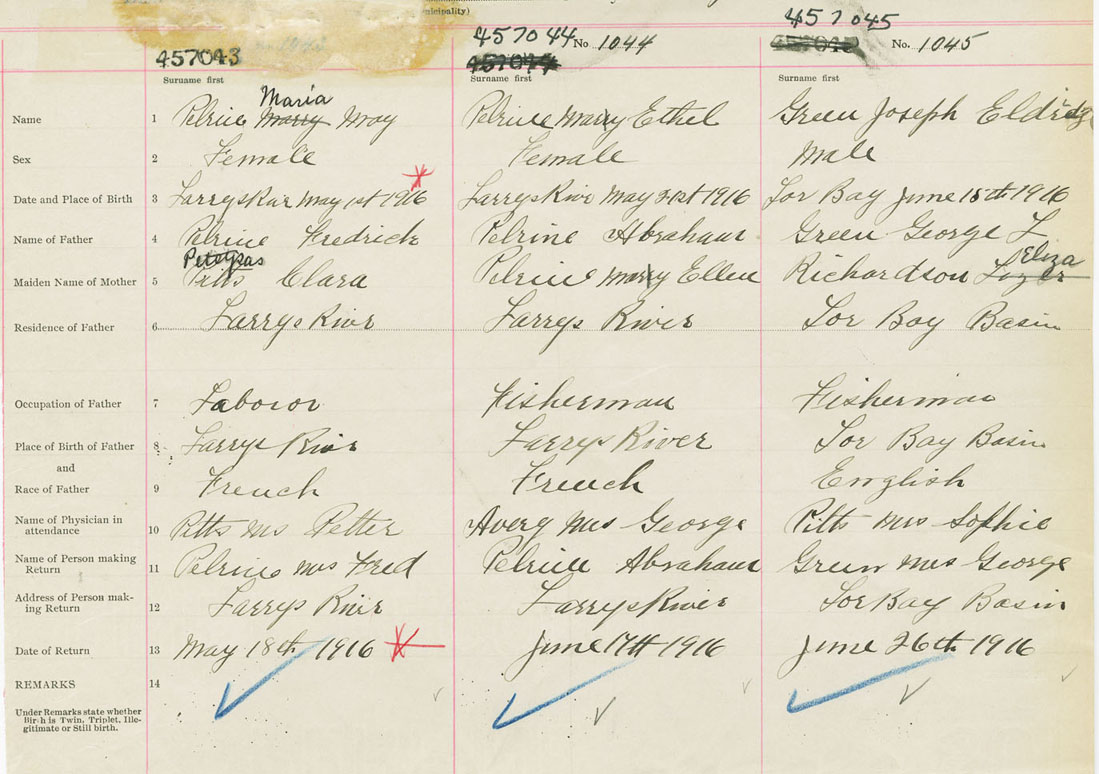 nicipality)
457043
457044 No 1044
457044
457045
457045 No. 1045
Surname first Surname first Surname first
Maria
Name 1 Pelrine Marry May Pelrine Marry Ethel Green Joseph Eldridge
Sex 2 Female Female Male
Date and Place of Birth 3 Larrys River May 1st 1916 Larrys River May 31st 1916 Lor Bay June 15th 1916
Name of Father 4 Pelrine Fredrick Pelrine Abraham Green George L
Petetpas Eliza
Maiden Name of Mother 5 Pitts Clara Pelrine Marry Ellen Richardson Lizer
Residence of Father 6 Larrys River Larrys River Lor Bay Basin
Occupation of Father 7 Laboror Fisherman Fisherman
Place of Birth of Father 8 Larrys River Larrys River Lor Bay Basin
and
Race of Father 9 French French English
Name of Physician in
attendance 10 Pitts Mrs Petter Avery Mrs George Pitts Mrs Sophie
Name of Person making
Return 11 Pelrine Mrs Fred Pelrine Abraham Green Mrs George
Address of Person mak-
ing Return 12 Larrys River Larrys River Lor Bay Basin
Date of Return 13 May 18th 1916 June 17th 1916 June 26th 1916
REMARKS 14
Under Remarks state whether
Birth is Twin, Triplet, Ille-
gitimate or Still birth.